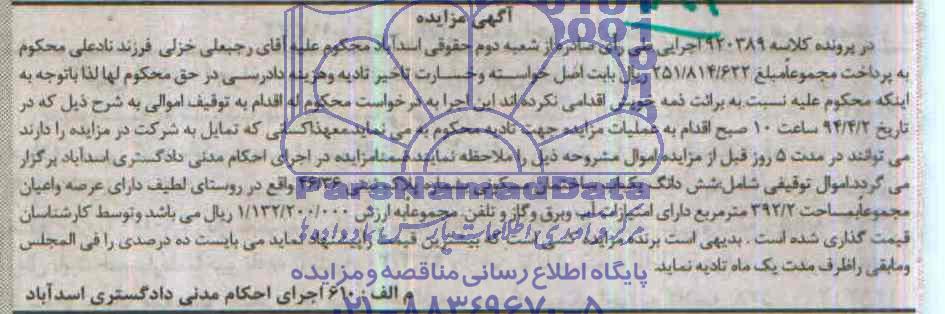 آگهی مزایده
در پرونده کلاسه ۹۲۰۳۸۹ اجرایی طی رای صادره از شعبه دوم حقوقی اسدآباد محکوم علیه آقای رجبعلی خزلی فرزند نادعلی محکوم
به پرداخت مجموعاًمبلغ ۲۵۱/۸۱۴/۶۲۲ ریال بابت اصل خواسته وخسارت تاخیر تادیه وهزینه دادرسی در حق محکوم لها لذا باتوجه به
اینکه محکوم علیه نسبت به برائت ذمه خویش اقدامی نکرده اند این اجرا به درخواست محکوم له اقدام به توقیف اموالی به شرح ذیل که در
تاریخ ۹۴/۴/۲ ساعت ۱۰ صبح اقدام به عملیات مزایده جهت تادیه محکوم به می نماید معهذاکسانی که تمایل به شرکت در مزایده را دارند
می توانند در مدت ۵ روز قبل از مزایده اموال مشروحه ذیل را ملاحظه نمایند ضمنامزایده در اجرای احکام مدنی دادگستری اسدآباد برگزار
می گردد.اموال توقیفی شامل:شش دانگ یکباب ساختمان مسکونی شماره پلاک ثبتی ۴۶/۳۶ واقع در روستای لطیف دارای عرصه واعیان
مجموعاًبمساحت ۳۹۲/۲ مترمربع دارای امتیازات آب وبرق وگاز و تلفن. مجموعابه ارزش ۱/۱۳۲/۲۰۰/۰۰۰ ریال می باشد وتوسط کارشناسان
قیمت گذاری شده است . بدیهی است برنده مزایده کسی است که بیشترین قیمت راپیشنهاد نماید می بایست ده درصدی را فی المجلس
ومابقی راظرف مدت یک ماه تادیه نماید.
م الف : ۶۱۰ اجرای احکام مدنی دادگستری اسدآباد
ParsNamadData
مرکز فرآوری اطلاعات پارس نماد داده ها
پایگاه اطلاع رسانی مناقصه و مزایده
۰۲۱-۸۸۳۴۹۶۷۰-۵